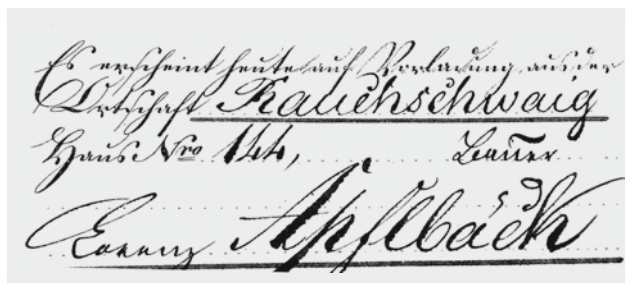 Es erscheint heute auf Vorladung aus der
Ortschaft Rauchschwaig
Haus Nro 144, Bauer
Lorenz Apflbäck